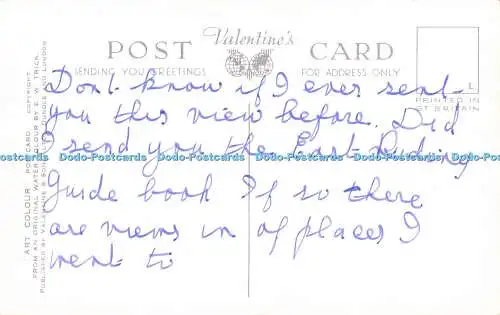 Valentine's
POST CARD
SENDING YOU GREETINGS
FOR ADDRESS ONLY
PRINTED IN
GT BRITAIN
L.
Dont know if I ever sent
you this view before. Did
I send you the East Riding
Guide book If so there
are views in of places I
went to
Dodo-Postcards Dodo-Postcards Dodo-Postcards Dodo-Postcards Dodo-Postcards Dodo-Postcards
ART COLOUR POSTCARD COPYRIGHT
FROM AN ORIGINAL WATER COLOUR BY E. W. TRICK.
PUBLISHED BY VALENTINE & SONS LTD., DUNDEE AND LONDON